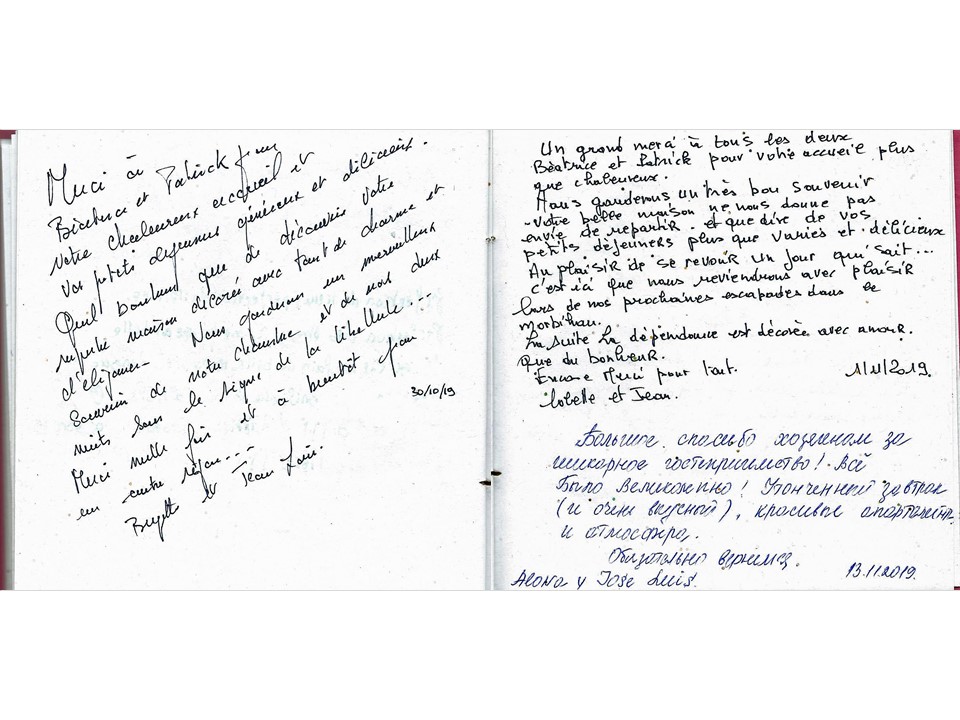 Merci à
Béatrice et Patrick pour
votre chaleureux accueil et
vos petits déjeunes généreux et délicieux.
Quel bonheur que de découvrir votre
superbe maison décorée avec tant de charme et
d'élégance - Nous gardons un merveilleux
souvenir de notre chambre et de nos deux
nuits sous le signe de la libellule.
Merci mille fois et à bientôt pour
un autre séjour....
30/10/19
Brigitte et Jean Loïc.
Un grand merci à tous les deux
Béatrice et Patrick pour votre accueil plus
que chaleureux.
Nous garderons un très bon souvenir
- Votre belle maison ne nous donne pas
envie de repartir. et que dire de vos
petits déjeuners plus que variés et délicieux
Au plaisir de se revoir un jour qui sait...
c'est ici que nous reviendrons avec plaisir
lors de nos prochaines escapades dans le
Morbihan.
La suite La dépendance est décorée avec amour.
Que du bonheur.
Encore Merci pour tout.
1/11/2019.
et Jean.
Большое спасибо хозяевам за
шикарное гостеприимство! Всё
было великолепно! Утонченный завтрак
(и очень вкусный), красивые апартаменты
и атмосфера.
Обязательно вернемся
Alona y Jose Luis.
13.11.2019.